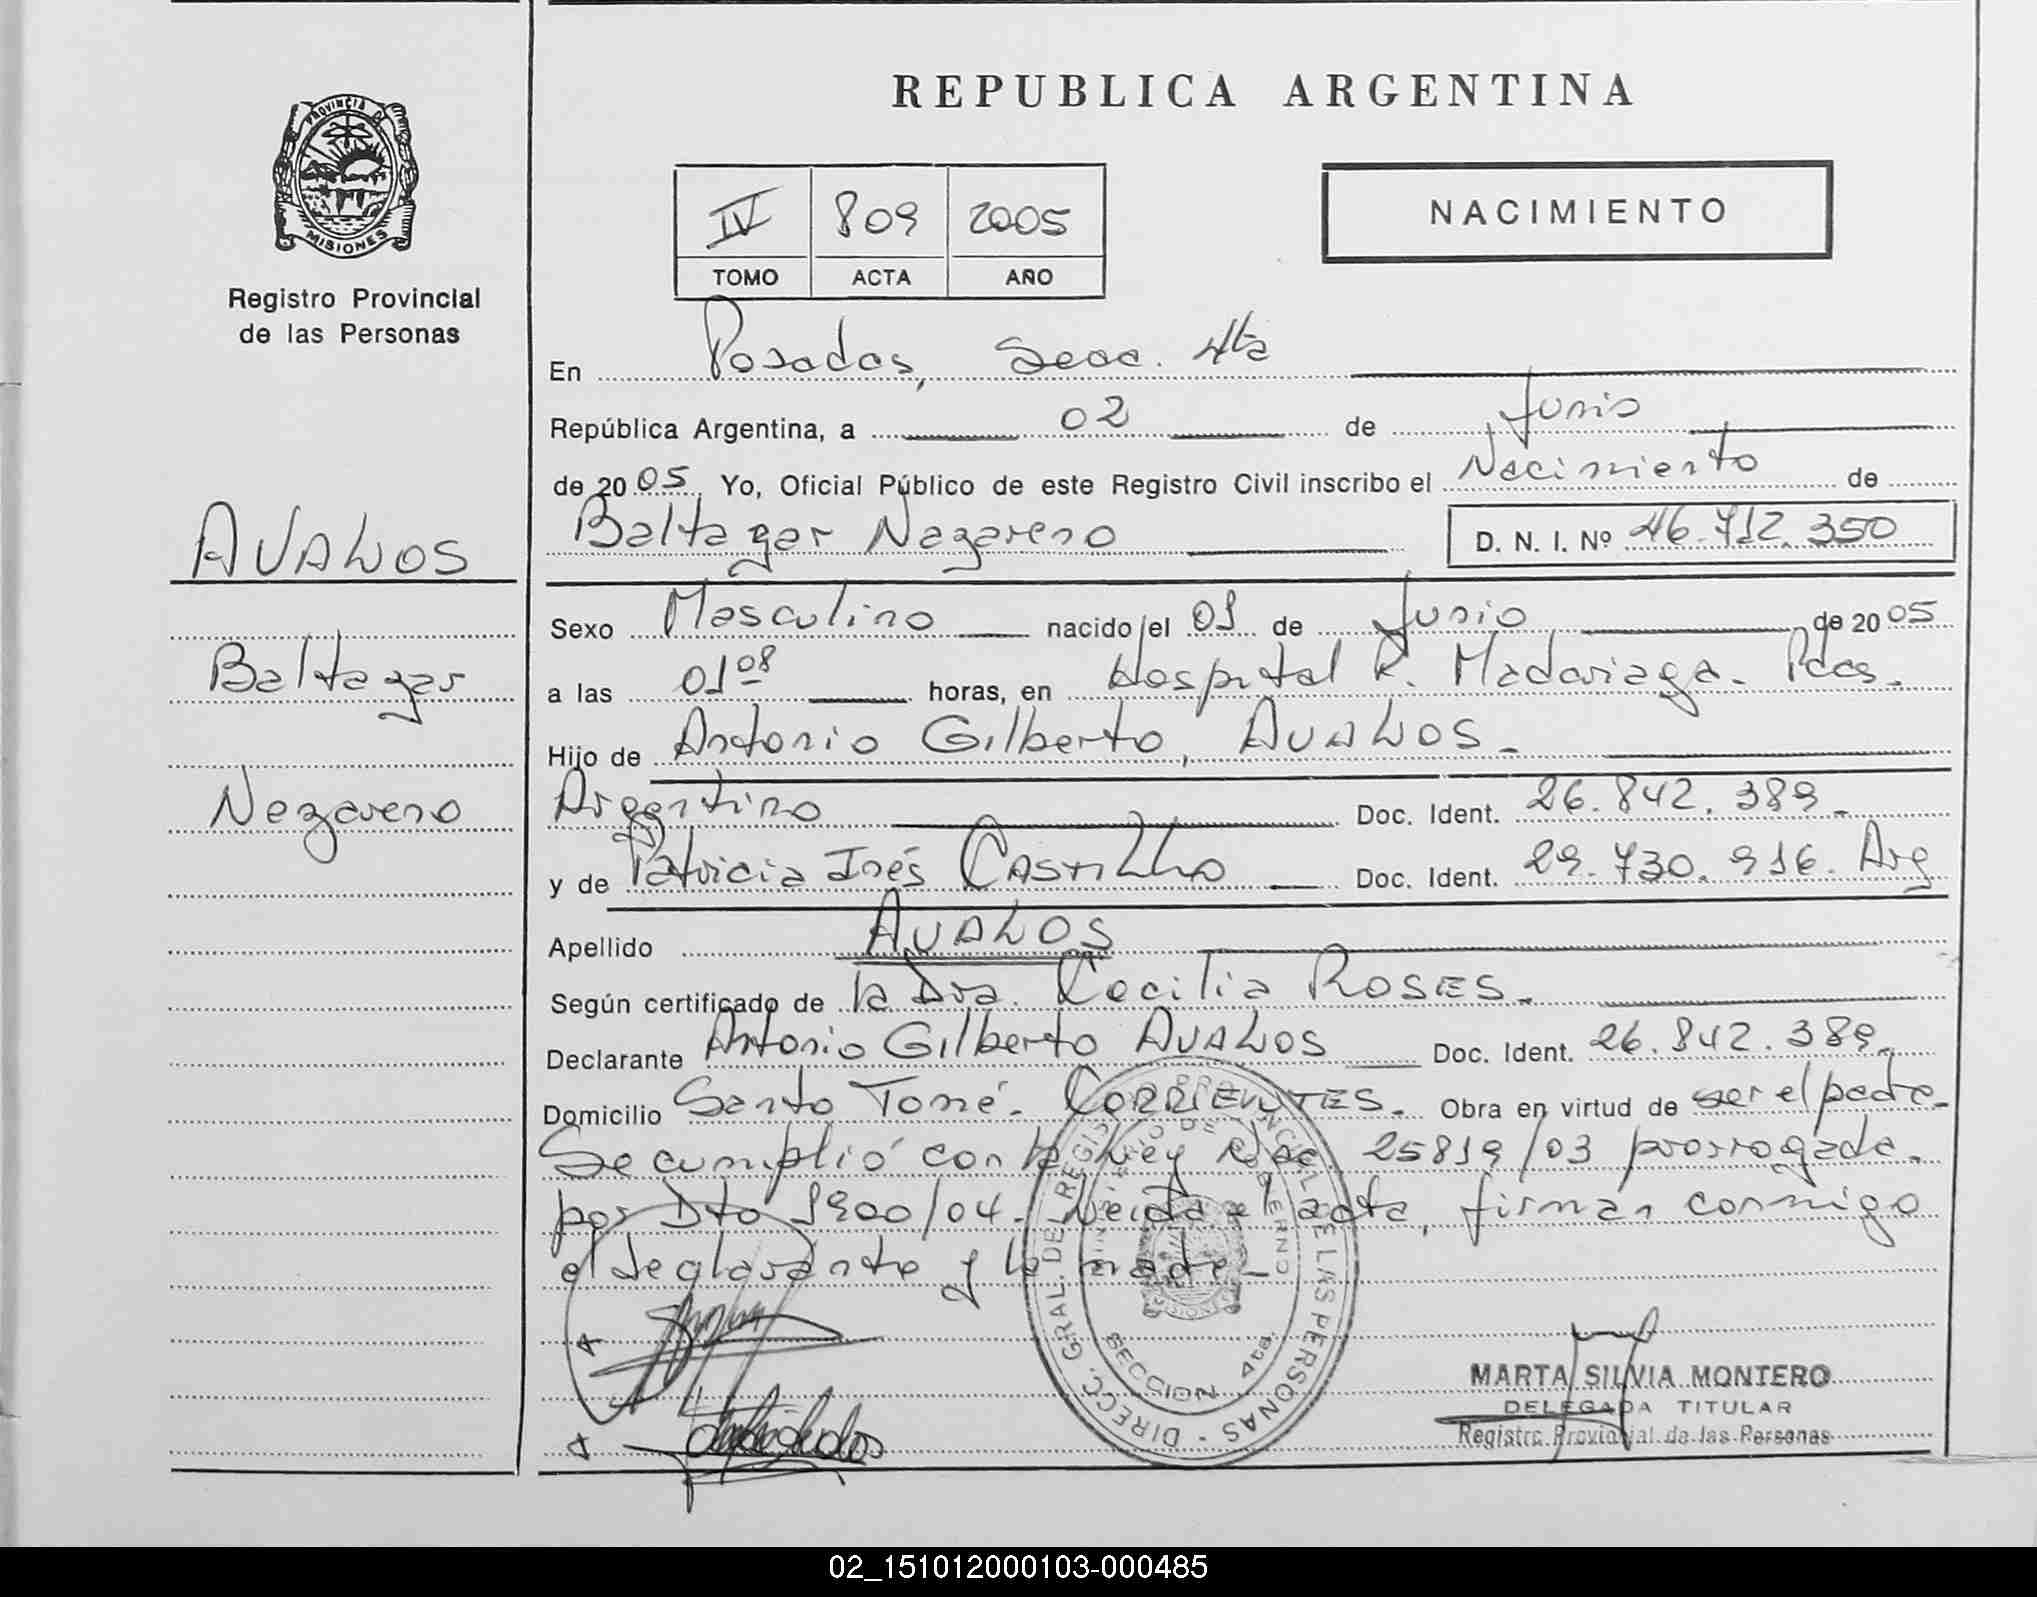 REPUBLICA ARGENTINA
PROVINCIA DE
MISIONES
Registro Provincial
de las Personas
IV 809 2005
TOMO ACTA AÑO
NACIMIENTO
AVALOS
Baltazar
Nazareno
En Posadas, Secc. 4ta
República Argentina, a 02 de Junio
de 2005 Yo, Oficial Público de este Registro Civil inscribo el Nacimiento de
Baltazar Nazareno D. N. I. Nº 46.712.350
Sexo Masculino nacido el 01 de Junio de 2005
a las 01 08 horas, en Hospital R. Madariaga. Pdas.
Hijo de Antonio Gilberto, AVALOS.
Argentino Doc. Ident. 26.842.389.
y de Patricia Inés CASTILLO Doc. Ident. 29.730.916. Arg
Apellido AVALOS
Según certificado de la Dra. Cecilia ROSES.
Declarante Antonio Gilberto AVALOS Doc. Ident. 26.842.389.
Domicilio Santo Tomé. CORRIENTES. Obra en virtud de ser el padre.
Se cumplió con la Ley Nac. 25819/03 prorrogada.
por Dto 1900/04. Leída el acta, firman conmigo
el declarante y la madre.
DIRECC. GRAL. DE REGISTRO PROVINCIAL DE LAS PERSONAS
SECCION 4ta.
MARTA SILVIA MONTERO
DELEGADA TITULAR
Registro Provincial de las Personas
02_151012000103-000485